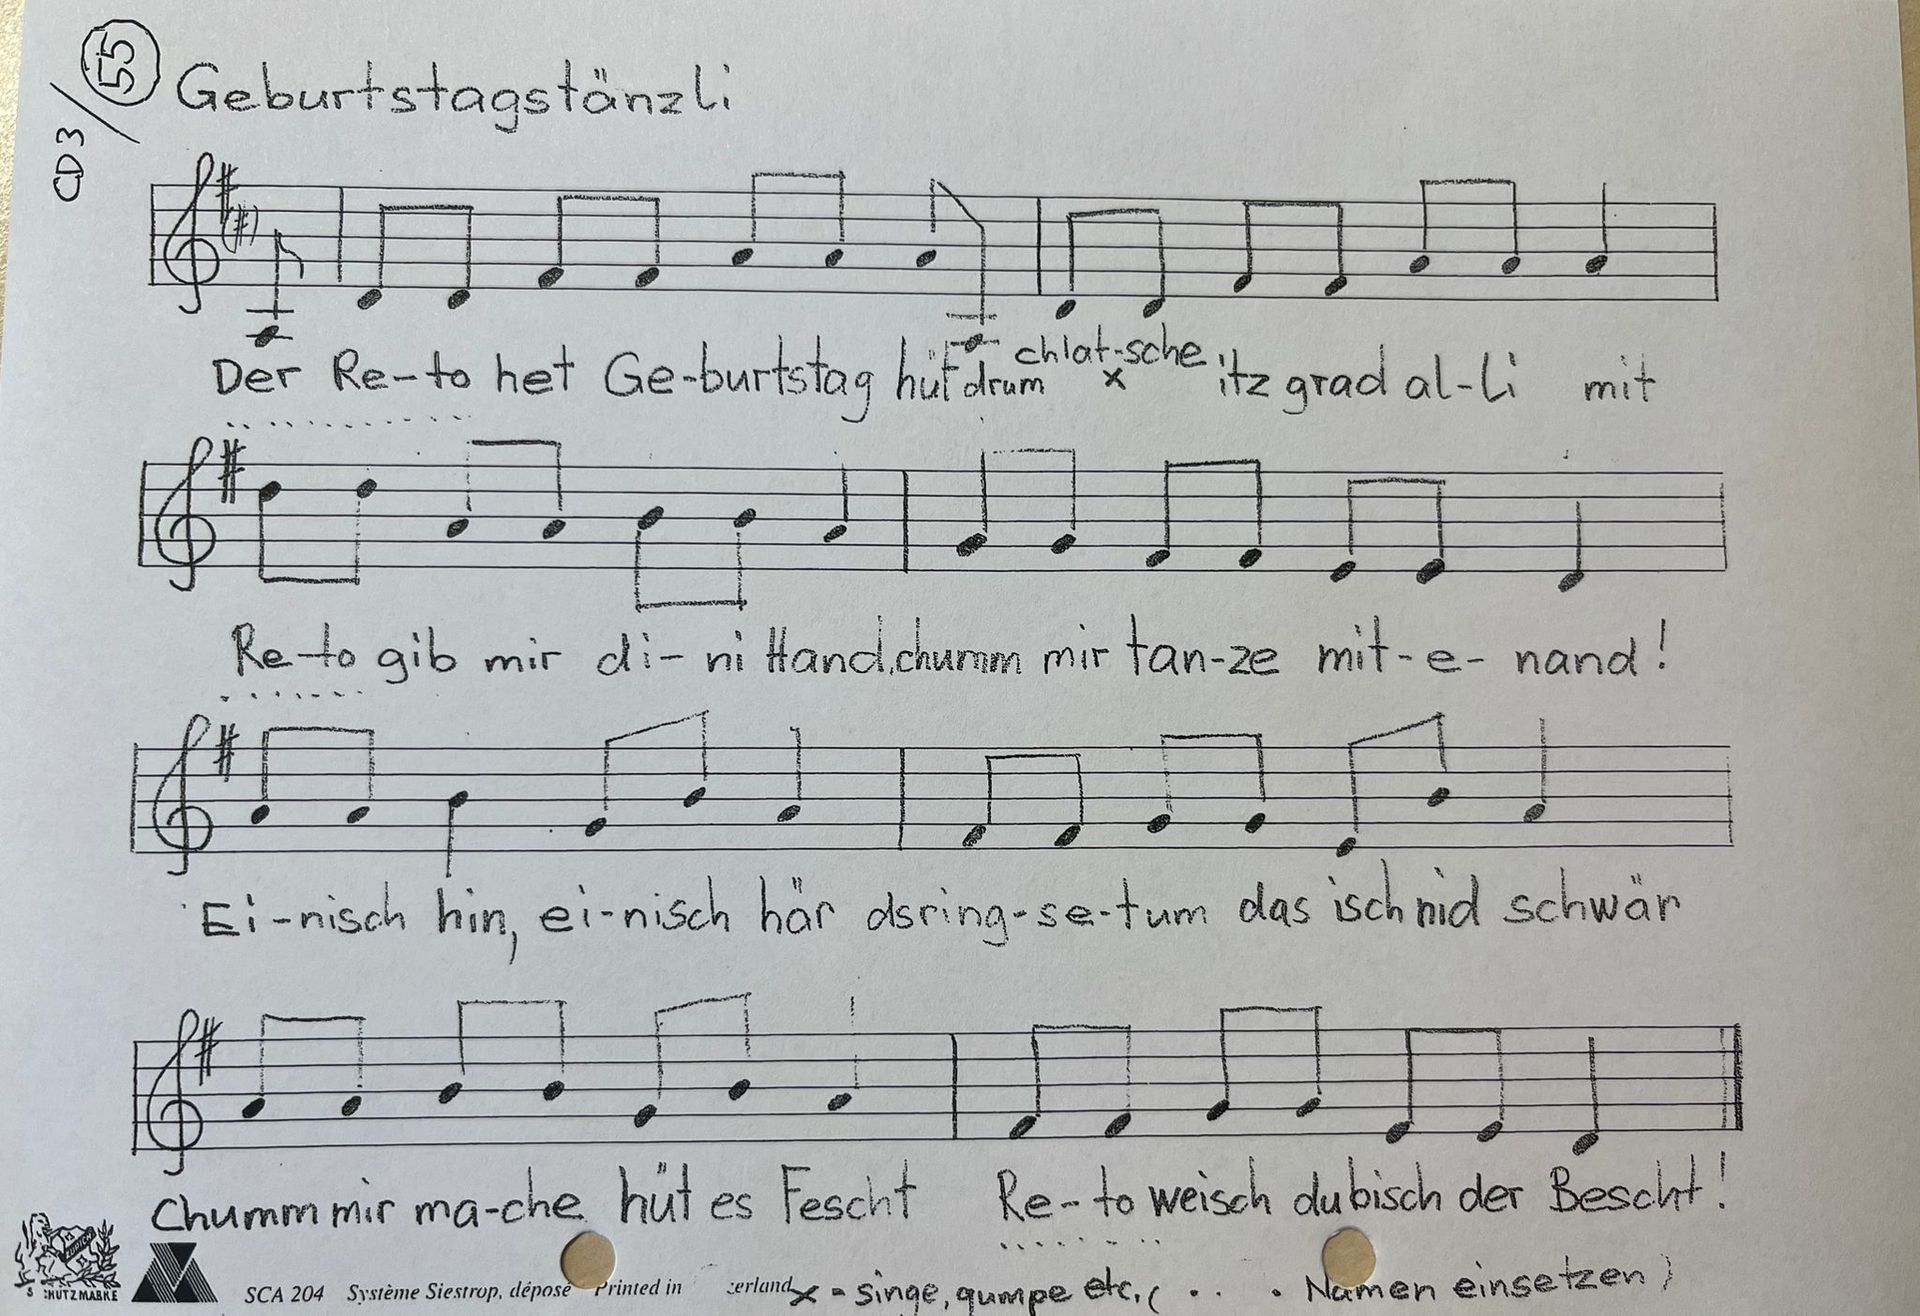 CD3 / 55 Geburtstagstänzli
Der Re-to het Ge-burtstag hüt drum chlat-sche itz grad al-li mit
x
Re-to gib mir di-ni Hand, chumm mir tan-ze mit-e-nand!
Ei-nisch hin, ei-nisch här dsring-se-tum das isch nid schwär
Chumm mir ma-che hüt es Fescht Re-to weisch du bisch der Bescht!
SCHUTZMARKE SCA 204 Système Siestrop, déposé Printed in zerland x = singe, gumpe etc. (... Namen einsetzen)